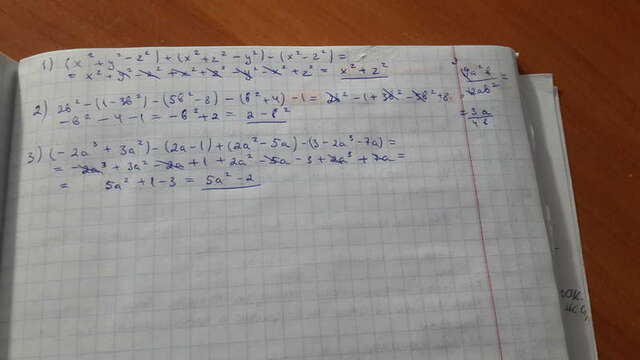 1) (x² + y² - z²) + (x² + z² - y²) - (x² - z²) =
= x² + y² - z² + x² + z² - y² - x² + z² = x² + z²
2) 2b² - (1 - 3b²) - (5b² - 8) - (b² + 4) - 1 = 2b² - 1 + 3b² - 5b² + 8
- b² - 4 - 1 = - b² + 2 = 2 - b²
3) (-2a³ + 3a²) - (2a - 1) + (2a² - 5a) - (3 - 2a³ - 7a) =
= -2a³ + 3a² - 2a + 1 + 2a² - 5a - 3 + 2a³ + 7a =
= 5a² + 1 - 3 = 5a² - 2
= 3a